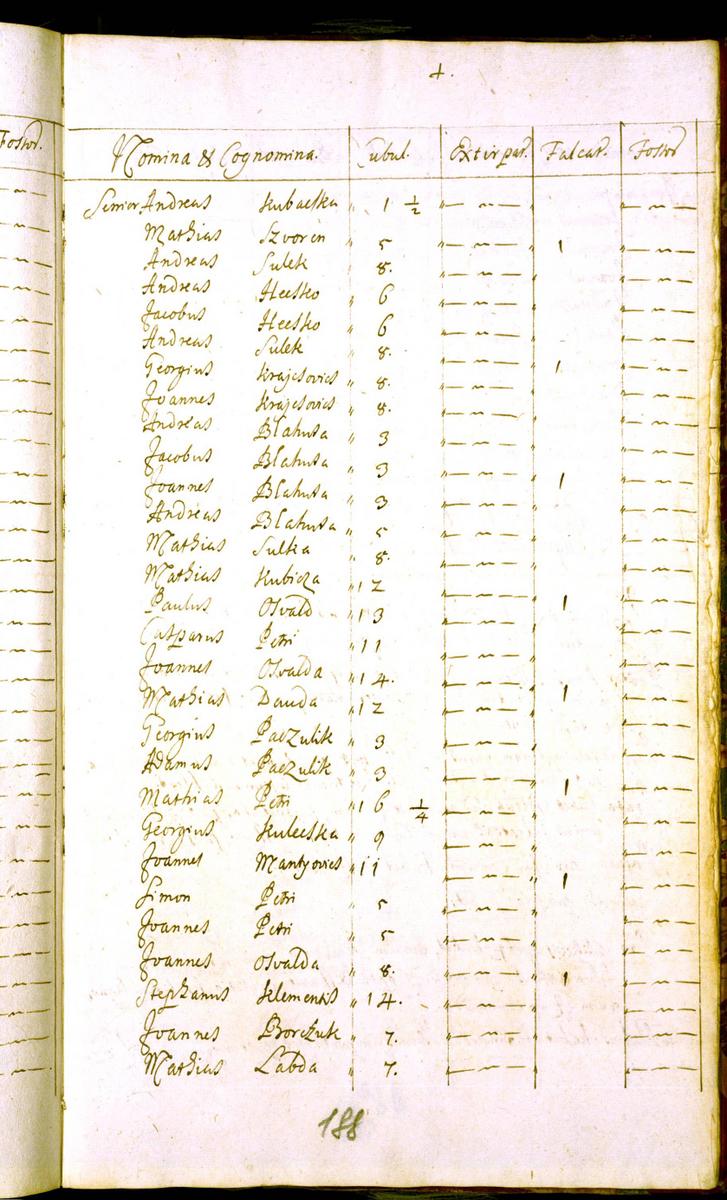 4.
Fossor.
Nomina & Cognomina. Cubul. Extirpat. Falcat. Fossor
Senior Andreas Kubaeska " 1 ½
Mathias Szvoren " 5 1
Andreas Sulek " 8.
Andreas Heesko " 6
Jacobus Heesko " 6
Andreas Sulek " 8.
Georgius Krajcsovics " 8. 1
Joannes Krajcsovics " 8.
Andreas Blahusa " 3
Jacobus Blahusa " 3
Joannes Blahusa " 3 1
Andreas Blahusa " 5
Mathias Sulka " 8.
Mathias Kubicza " 12
Paulus Osvald " 13 1
Casparus Petri " 11
Joannes Osvalda " 14.
Mathias Dauda " 12 1
Georgius Paczulik " 3
Adamus Paczulik " 3
Mathias Petri " 16 ¼ 1
Georgius Kuleeska " 9
Joannes Mantyovics " 11
Simon Petri " 5 1
Joannes Petri " 5
Joannes Osvalda " 8.
Stephanus Klementis " 14. 1
Joannes Borczuk " 7.
Mathias Labda " 7.
188